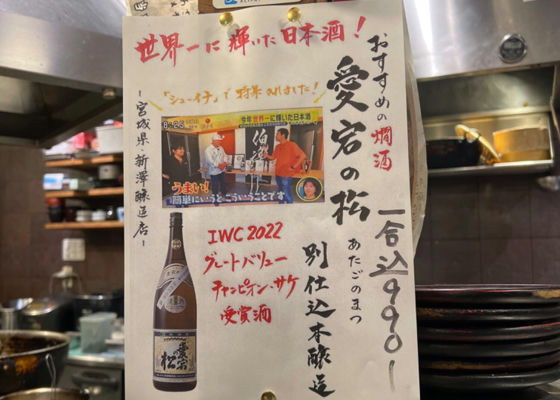 世界一に輝いた日本酒！
「シューイチ」で紹介されました！
おすすめの燗酒
愛宕の松
あたごのまつ
一合込990-
別仕込本醸造
-宮城県 新澤醸造店-
今年世界一に輝いた日本酒
うまい！
簡単にいうとこういうことです
IWC2022
グレートバリュー
チャンピオン・サケ
受賞酒
愛宕の松